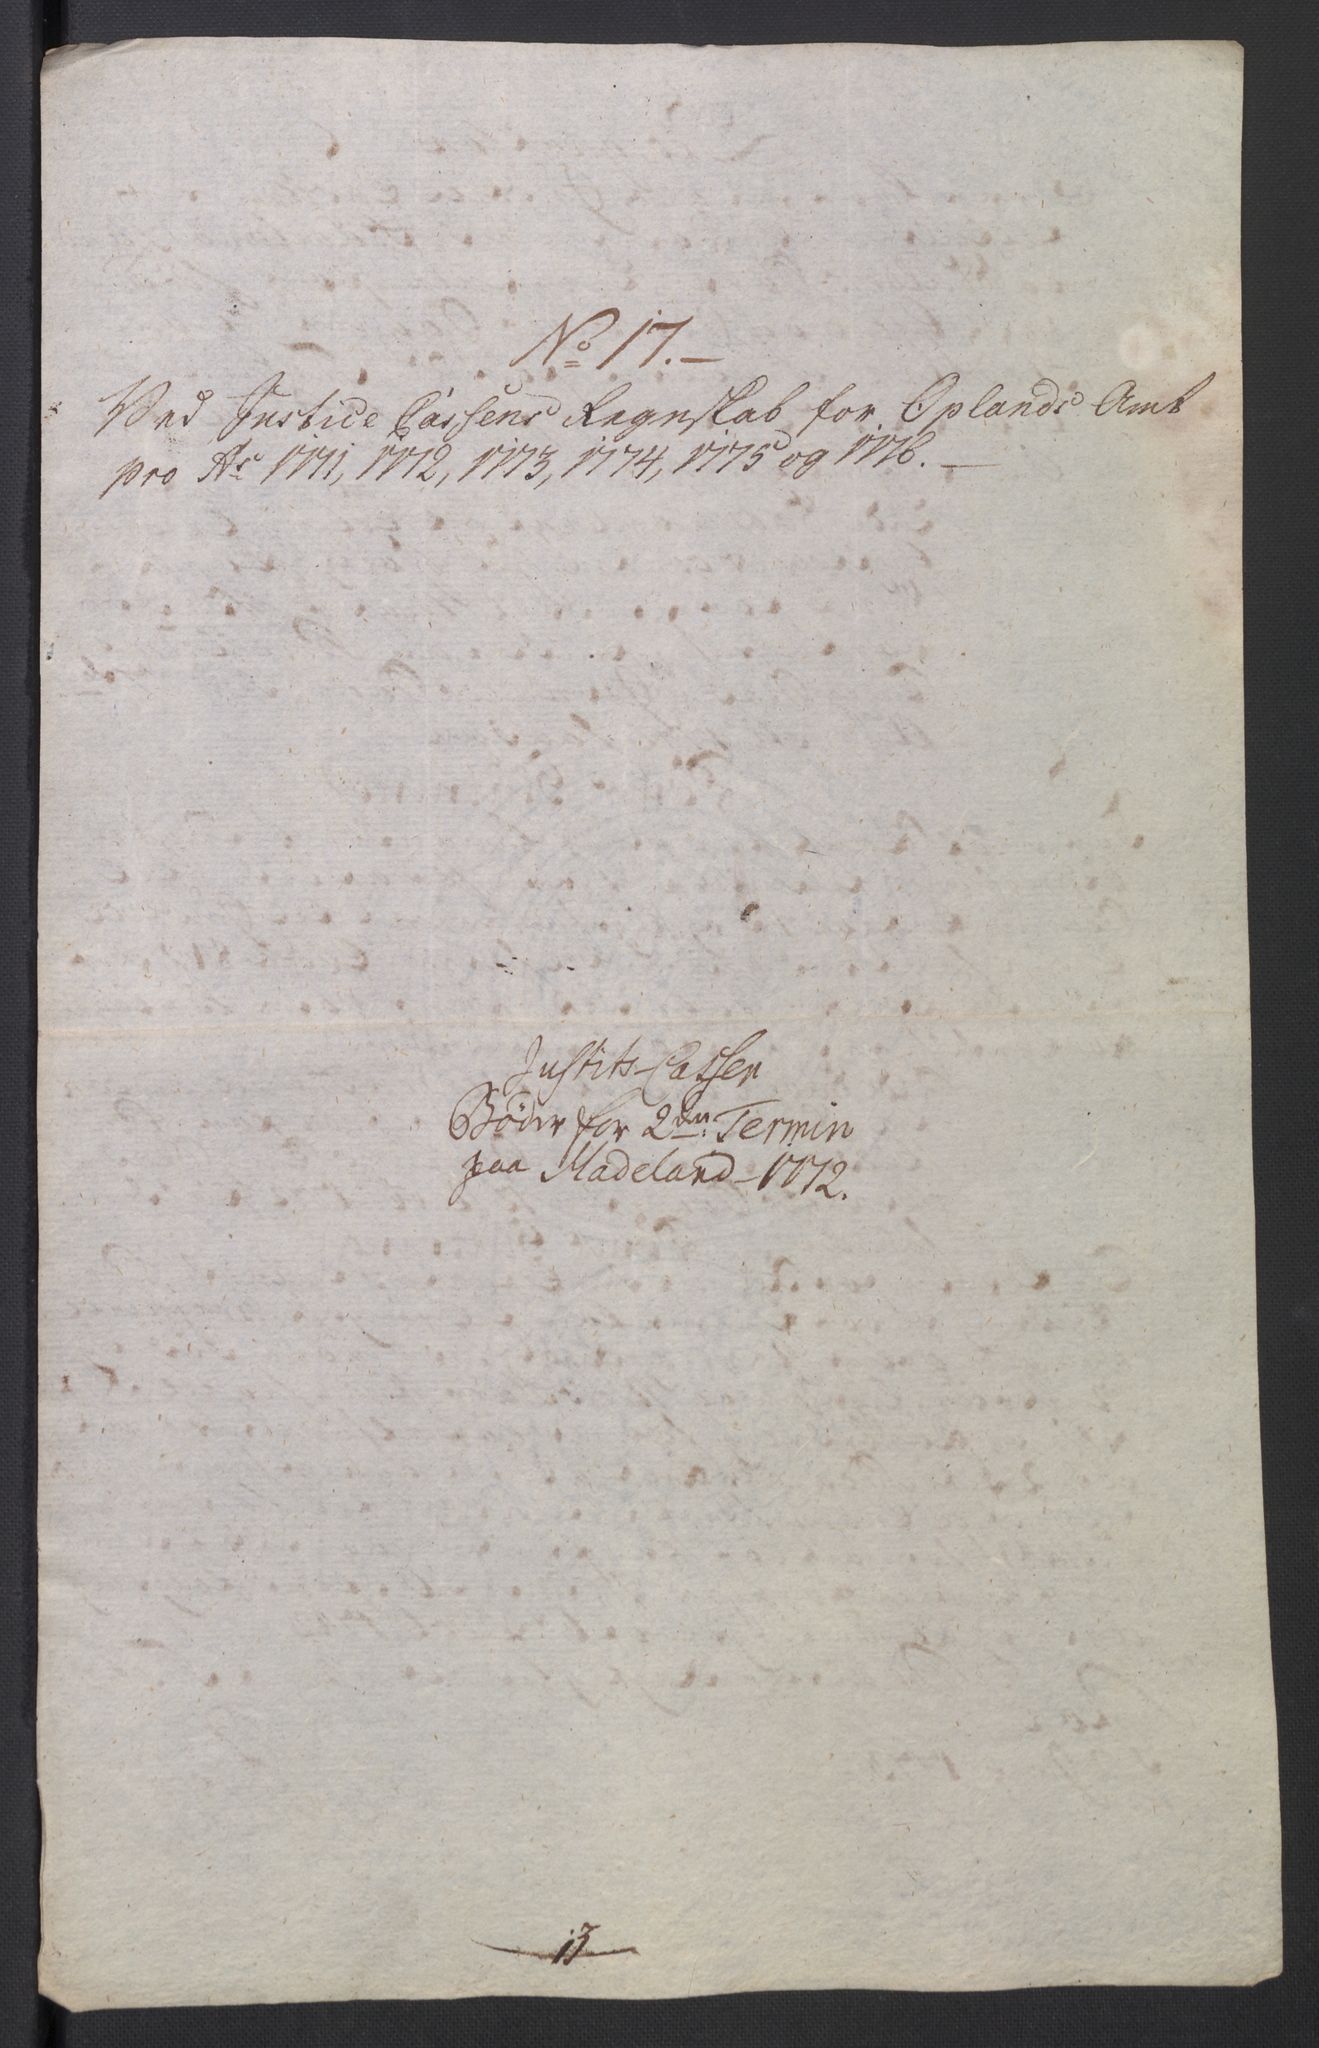 No 17.-
Ved Justice Cassens Regnskab for Oplands Amt
pro Ao 1771, 1772, 1773, 1774, 1775 og 1776.-
Justits-Cassen
Böder for 2den Termin
paa Hadeland-1772.
13